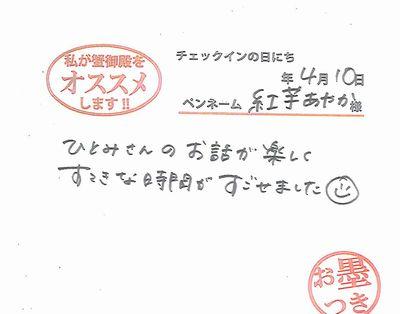 私が蟹御殿を
オススメ
します!!
チェックインの日にち
年 4月 10日
ペンネーム 紅芋あやか 様
ひとみさんの お話が 楽しく
すてきな時間が すごせました
お墨
つき